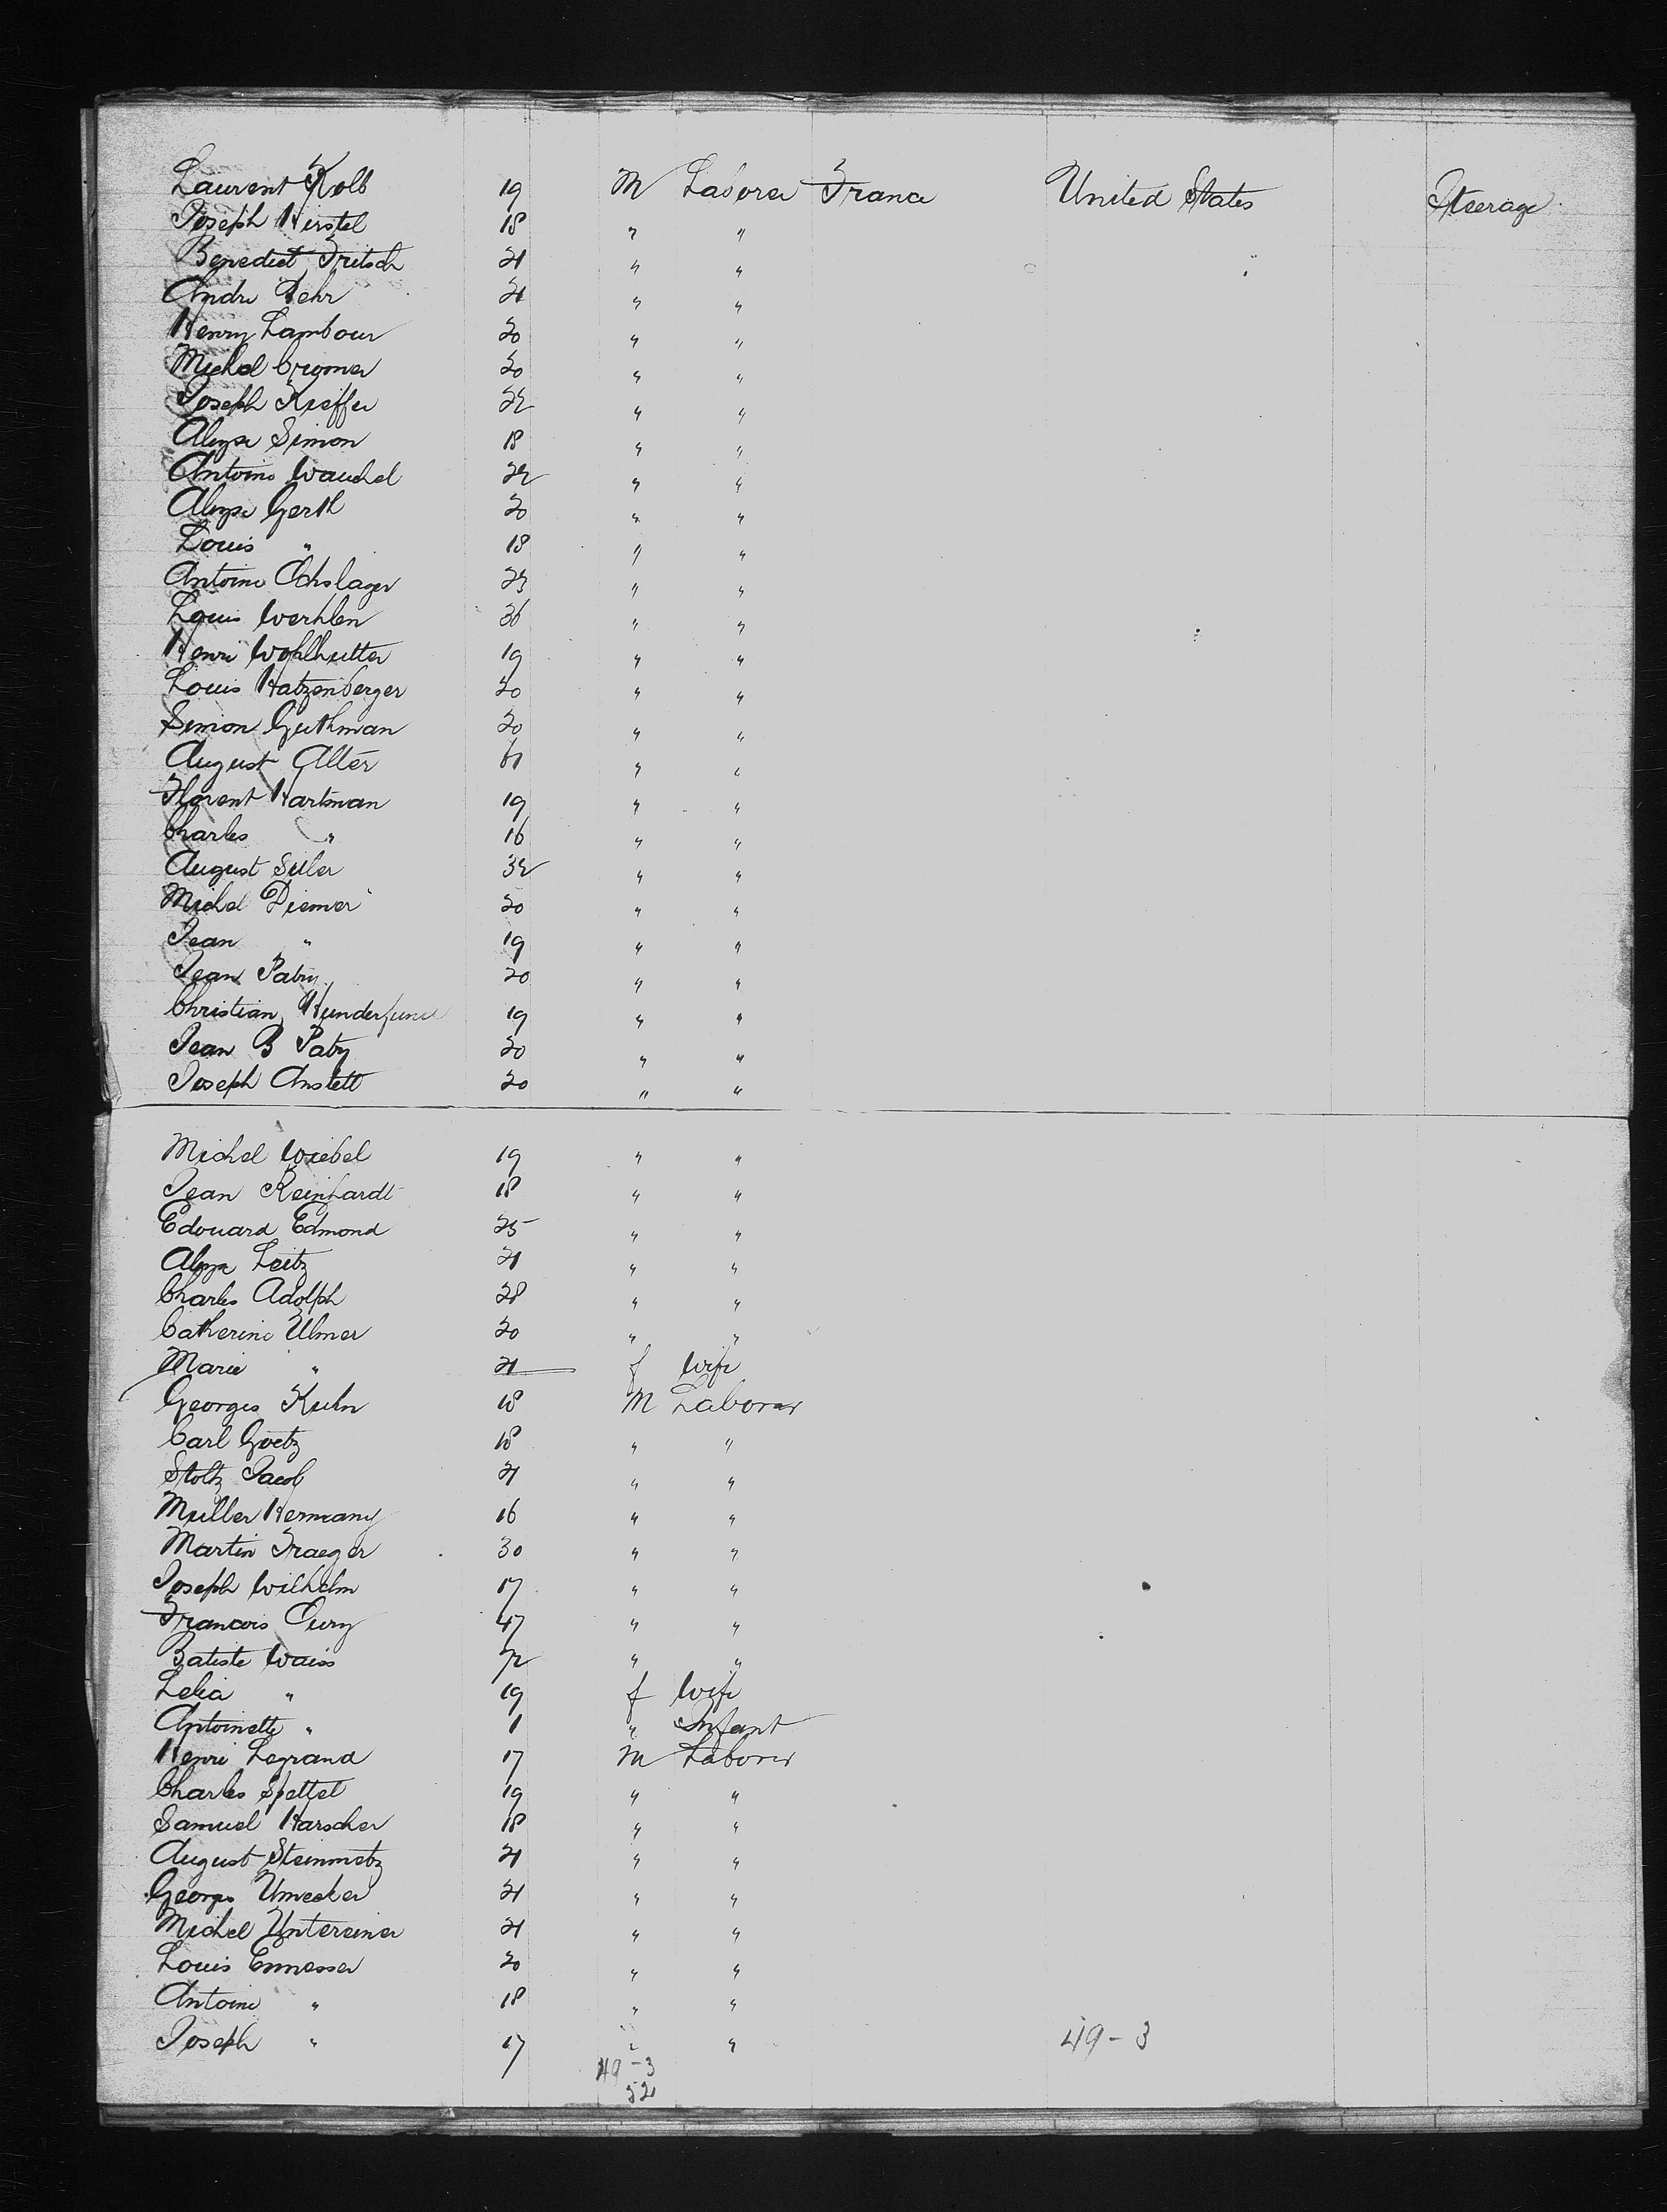 Laurent Kolb 19 M Laborer France United States Steerage
Joseph Hirstel 18 " "
Benedict Fritsch 21 " "
Andre Behr 21 " "
Henry Lambour 20 " "
Michel 20 " "
Joseph Kieffer 22 " "
Aloyse Simon 18 " "
Antoine Wauchel 22 " "
Aloyse Gerth 20 " "
Louis " 18 " "
Antoine Ochslager 23 " "
Louis Werhlen 36 " "
Henri Wohlhutter 19 " "
Louis Hatzenberger 20 " "
Simon Guthman 20 " "
August Alter 61 " "
Florent Hartman 19 " "
Charles " 16 " "
August Siler 32 " "
Michel Diemer 20 " "
Jean " 19 " "
Jean Patry 20 " "
Christian 19 " "
Jean B Paty 20 " "
Joseph Anstett 20 " "
Michel Wiebel 19 " "
Jean Reinhardt 18 " "
Edouard Edmond 25 " "
Aloyse Leitz 21 " "
Charles Adolph 28 " "
Catherine Ulmer 20 " "
Marie " 21 f Wife
Georges Kuhn 18 M Laborer
Carl Goetz 18 " "
Stoltz Jacob 21 " "
Muller Hermany 16 " "
Martin Traeger 30 " "
Joseph Wilhelm 17 " "
Francois Oury 47 " "
Batiste Waiss 72 " "
Lelia " 19 f Wife
Antoinette " 1 " Infant
Henri Legrand 17 M Laborer
Charles Spettel 19 " "
Samuel Harscher 18 " "
August Steinmetz 21 " "
Georges Umecker 21 " "
Michel Untereiner 21 " "
Louis Ennesser 20 " "
Antoine " 18 " "
Joseph " 17 " " 49-3
49-3
52